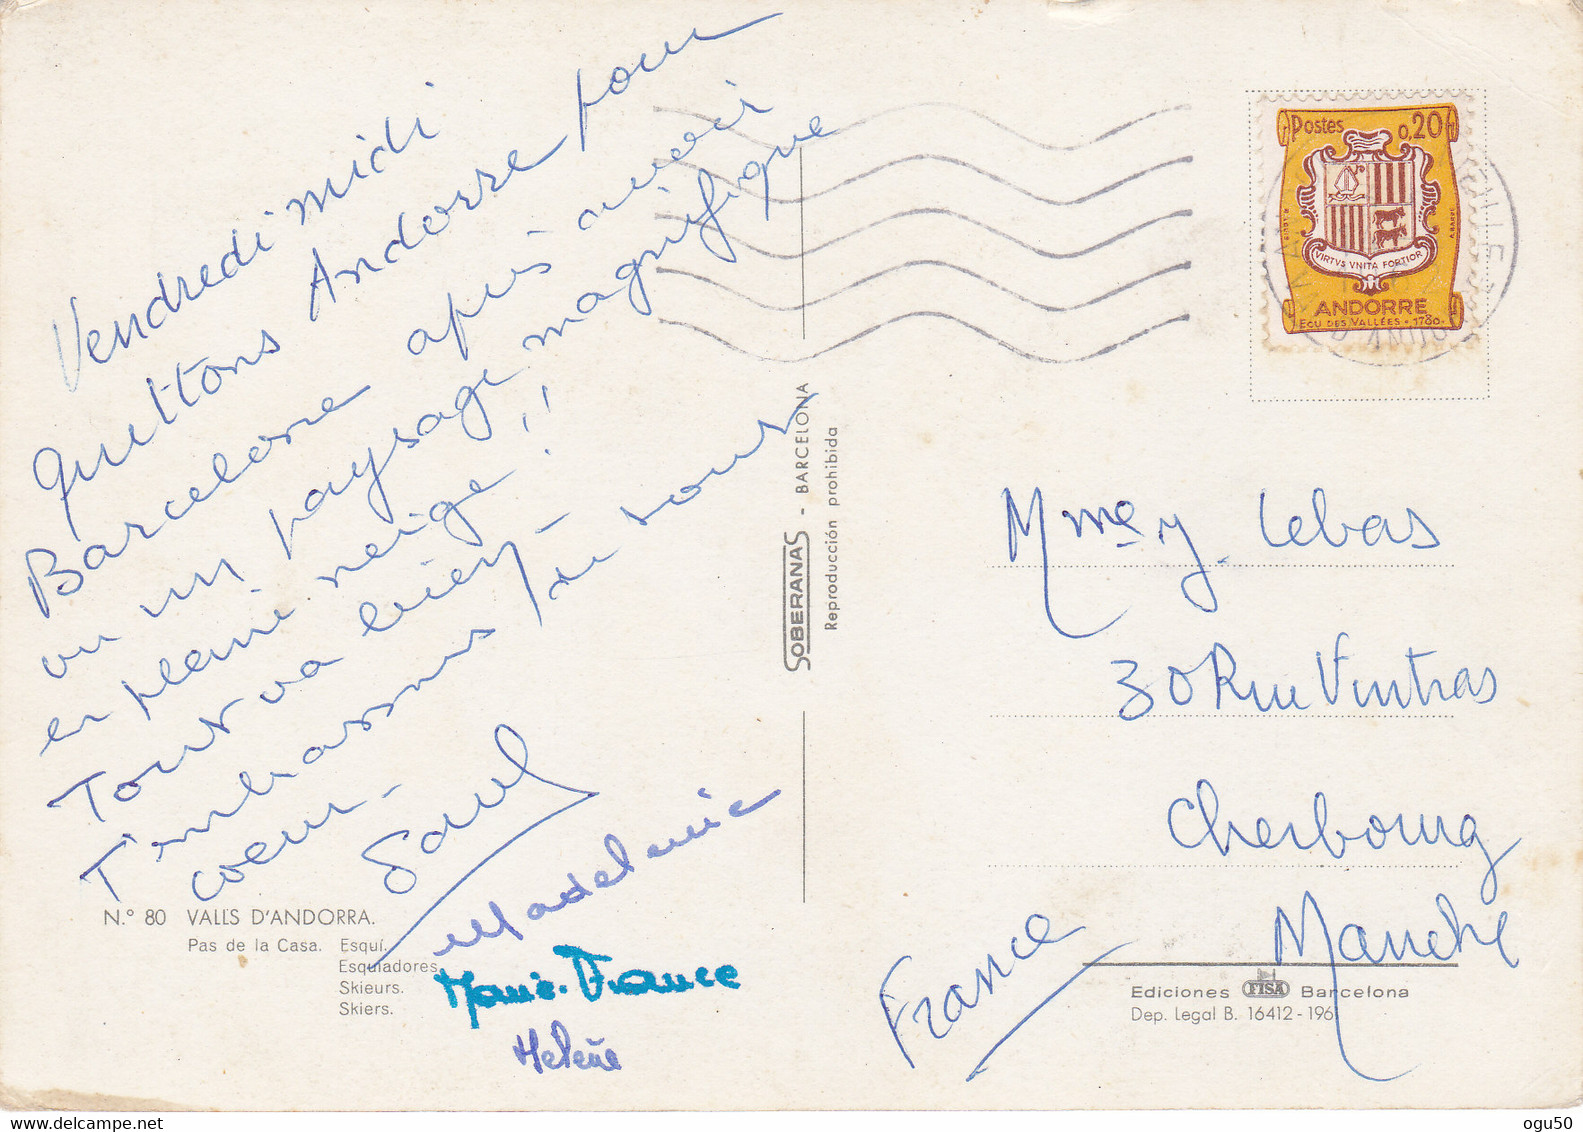 Vendredi midi
quittons Andorre pour
Barcelone après avoir
vu un paysage magnifique
en pleine neige!!
Tout va bien -
T'embrassons de tout
coeur -
Madeleine
Marie-France
Hélène
N.° 80 VALLS D'ANDORRA.
Pas de la Casa. Esquí.
Esquiadores.
Skieurs.
Skiers.
SOBERANAS - BARCELONA
Reproducción prohibida
Postes 0,20
VIRTVS VNITA FORTIOR
ANDORRE
ECU DES VALLÉES · 1780·
Mme y. Lebas
30 Rue Vintras
Cherbourg
Manche
France
Ediciones FISA Barcelona
Dep. Legal B. 16412 - 196
ogu50